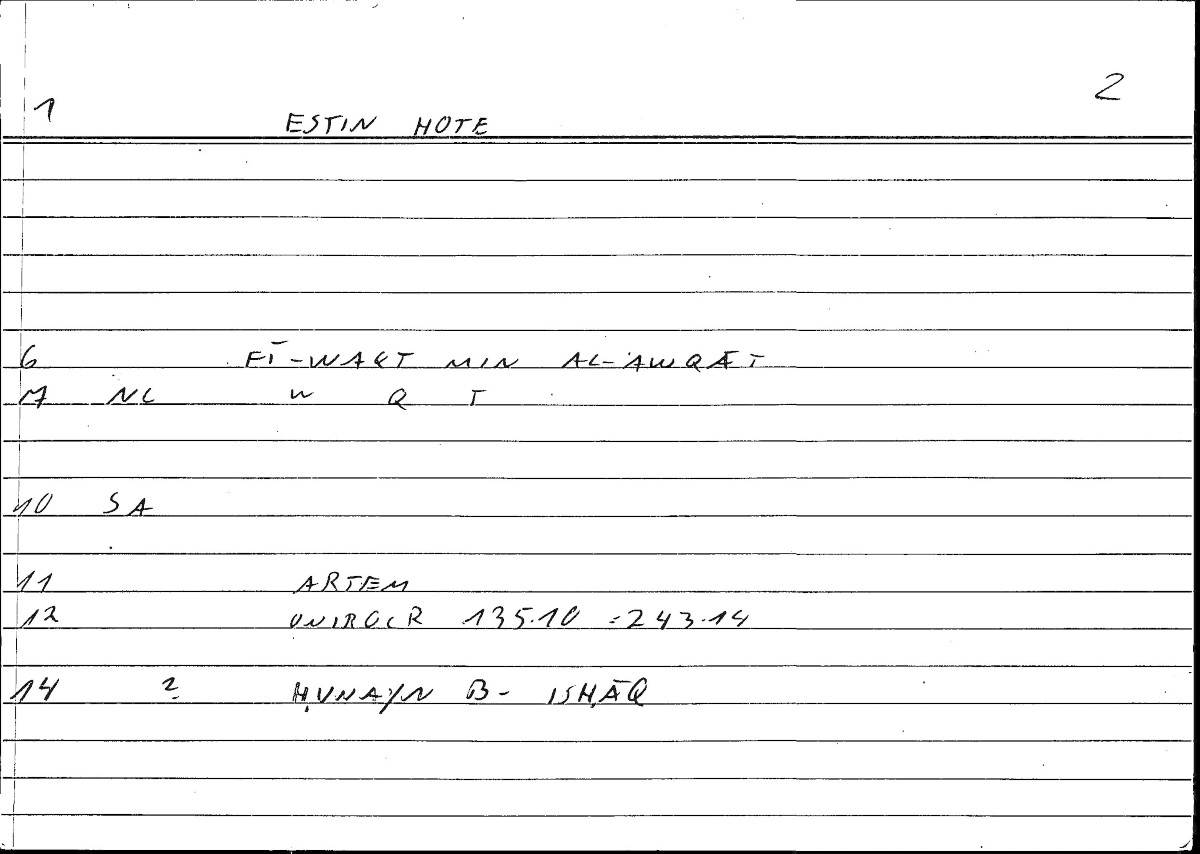 2
1 ESTIN HOTE
6 FĪ-WAQT MIN AL-ʾAWQĀT
7 NL W Q T
10 SA
11 ARTEM
12 ONIROCR 135.10 =243.14
14 2 ḤUNAYN B- ISḤĀQ